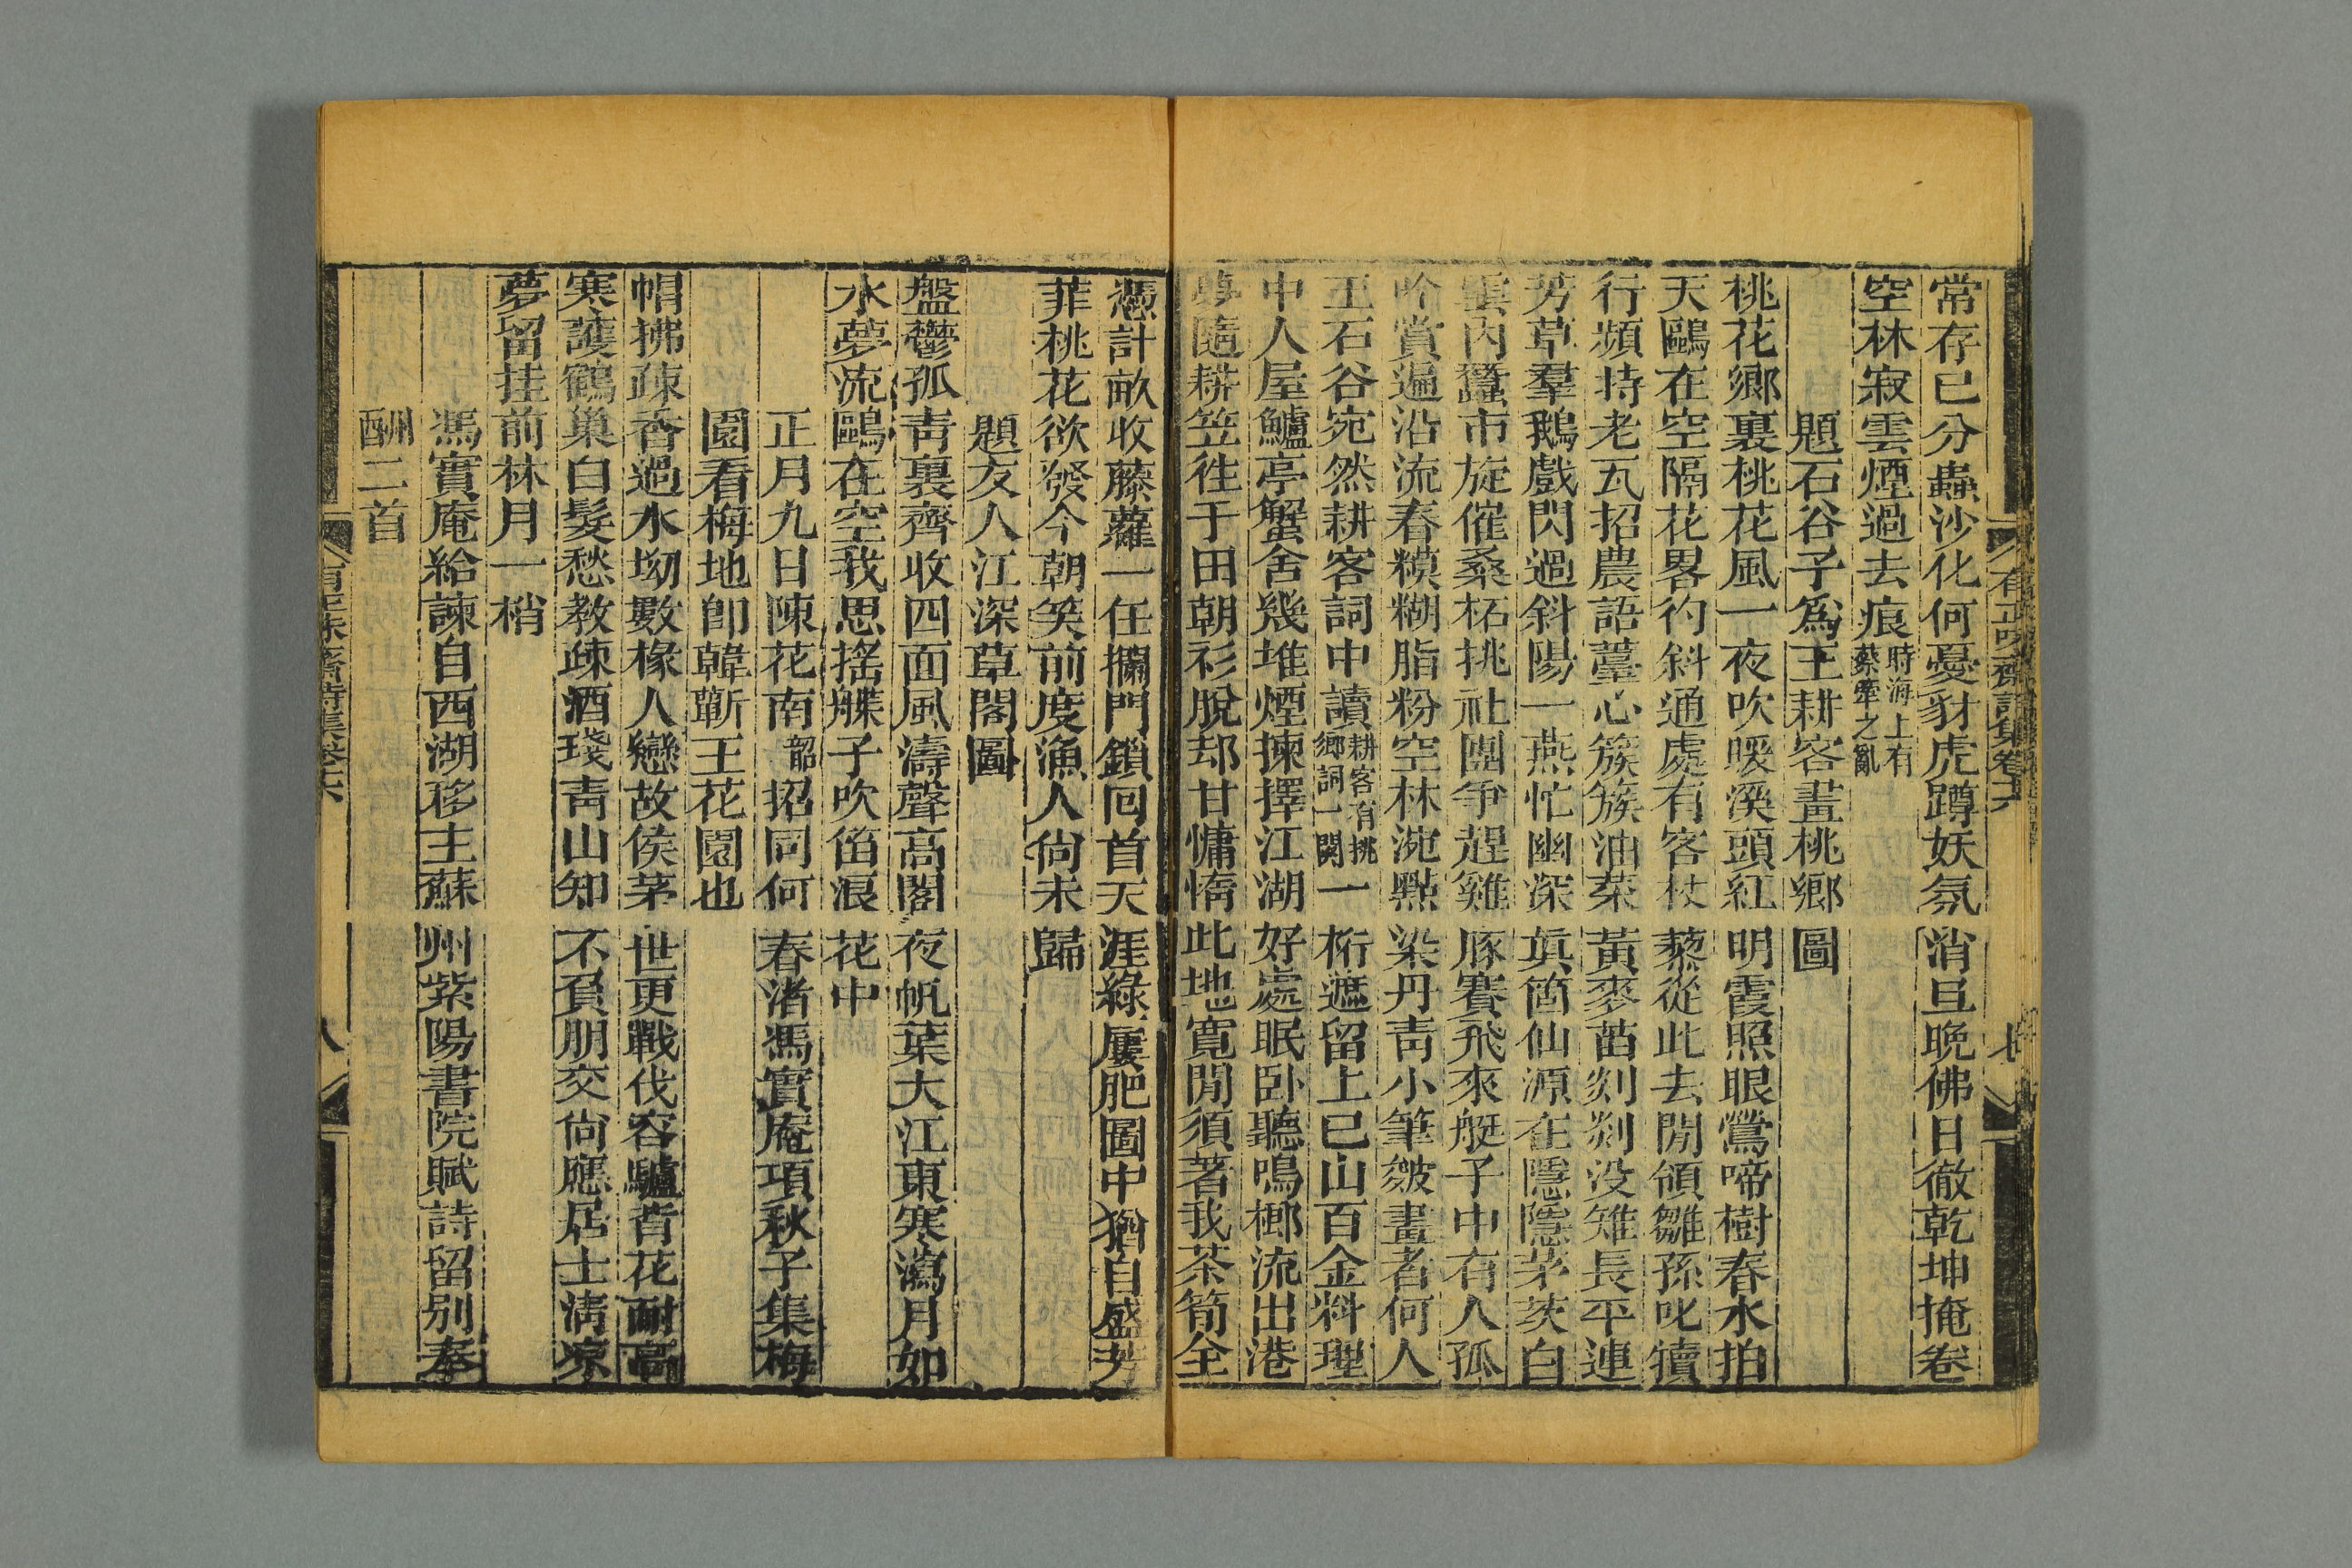 有正味齋詩集卷十六
七
常存已分蟲沙化何憂豺虎蹲妖氛消旦晚佛日徹乾坤掩卷
空林寂雲煙過去痕時海上有蔡牽之亂
題石谷子為王耕客畫桃鄉圖
桃花鄉裏桃花風一夜吹暖溪頭紅明霞照眼鶯啼樹春水拍
天鷗在空隔花畧彴斜通處有客杖藜從此去閒領雛孫叱犢
行頻持老瓦招農語薹心簇簇油菜黃麥苗剡剡没雉長平連
芳草羣鵝戲閃過斜陽一燕忙幽深真箇仙源在隱隱茅茨白
雲內蠶市旋催桑柘挑社團爭趕雞豚賽飛來艇子中有人孤
吟賞遍沿流春糢糊脂粉空林涴點染丹青小筆皴畫者何人
王石谷宛然耕客詞中讀耕客有桃鄉詞一闋一桁遮留上巳山百金料理
中人屋鱸亭蟹舍幾堆煙揀擇江湖好處眠卧聽鳴榔流出港
夢隨耕笠往于田朝衫脫却甘慵惰此地寬閒須著我茶筍全
憑計畝收藤蘿一任攔門鎖回首天涯綠屢肥圖中猶自盛芳
菲桃花欲發今朝笑前度漁人尙未歸
題友人江深草閣圖
盤鬱孤青裏齊收四面風濤聲高閣夜帆葉大江東寒瀉月如
水夢流鷗在空我思搖艓子吹笛浪花中
正月九日陳花南韶招同何春渚馮實庵項秋子集梅
園看梅地卽韓蘄王花園也
帽拂疎香過水坳數椽人戀故侯茅世更戰伐容驢背花耐高
寒護鶴巢白髮愁教疎酒琖青山知不負朋交尙應居士淸凉
夢留挂前林月一梢
馮實庵給諫自西湖移主蘇州紫陽書院賦詩留別奉
酬二首
有正味齋詩集卷十六
八